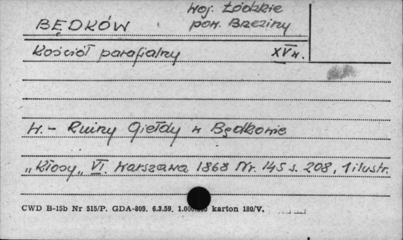 Woj. Łódzkie
BĘDKÓW pow. Brzeziny
Kościół parafialny XVw.
W. - Ruiny Giełdy w Będkowie
„Kłosy", VI. Warszawa 1868 Nr. 145 s. 208, 1 ilustr.
CWD B-15b Nr 515/P. GDA-809. 6.3.59. karton 180/V.